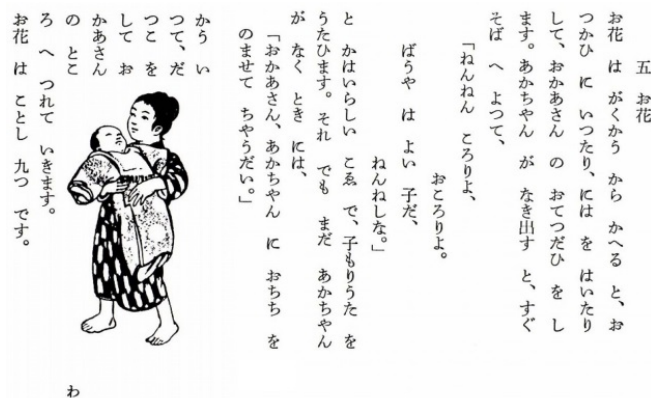 五 お花
お花 は がくかう から かへる と、お
つかひ に いつたり、には を はいたり
して、おかあさん の おてつだひ を し
ます。あかちゃん が なき出す と、すぐ
そば へ よつて、
「ねんねん ころりよ、
おころりよ。
ばうや は よい 子だ、
ねんねしな。」
と かはいらしい こゑ で、子もりうた を
うたひます。それ でも まだ あかちゃん
が なく とき には、
「おかあさん、あかちゃん に おちち を
のませて ちゃうだい。」
かう い
つて、だ
つこ を
して お
かあさん
の とこ
ろ へ つれて いきます。
お花 は ことし 九つ です。
わ